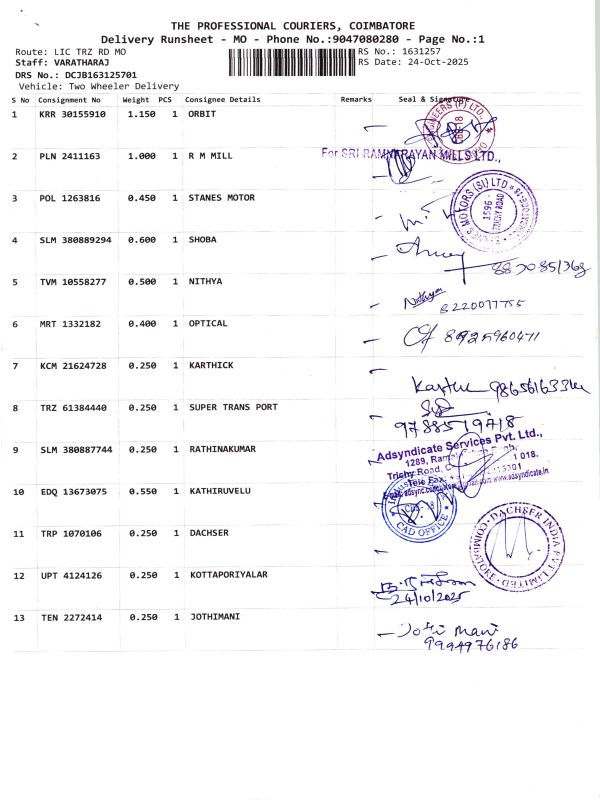 THE PROFESSIONAL COURIERS, COIMBATORE
Delivery Runsheet - MO - Phone No.:9047080280 - Page No.:1
Route: LIC TRZ RD MO
RS No.: 1631257
Staff: VARATHARAJ
RS Date: 24-Oct-2025
DRS No.: DCJB163125701
Vehicle: Two Wheeler Delivery
S No Consignment No Weight PCS Consignee Details Remarks Seal & Signature
1 KRR 30155910 1.150 1 ORBIT
2 PLN 2411163 1.000 1 R M MILL
For SRI RAMNARAYAN MILLS LTD.,
3 POL 1263816 0.450 1 STANES MOTOR
MOTORS (SI) LTD
1596
TRICHY ROAD
4 SLM 380889294 0.600 1 SHOBA
5 TVM 10558277 0.500 1 NITHYA
Nithya
8220077755
6 MRT 1332182 0.400 1 OPTICAL
8925960471
7 KCM 21624728 0.250 1 KARTHICK
8 TRZ 61384440 0.250 1 SUPER TRANS PORT
9788519718
9 SLM 380887744 0.250 1 RATHINAKUMAR
Adsyndicate Services Pvt. Ltd.,
1289,
Trichy Road,
10 EDQ 13673075 0.550 1 KATHIRUVELU
CAD OFFICE
11 TRP 1070106 0.250 1 DACHSER
DACHSER INDIA PVT LIMITED
COIMBATORE
12 UPT 4124126 0.250 1 KOTTAPORIYALAR
24/10/2025
13 TEN 2272414 0.250 1 JOTHIMANI
Jothi Mani
9994976186